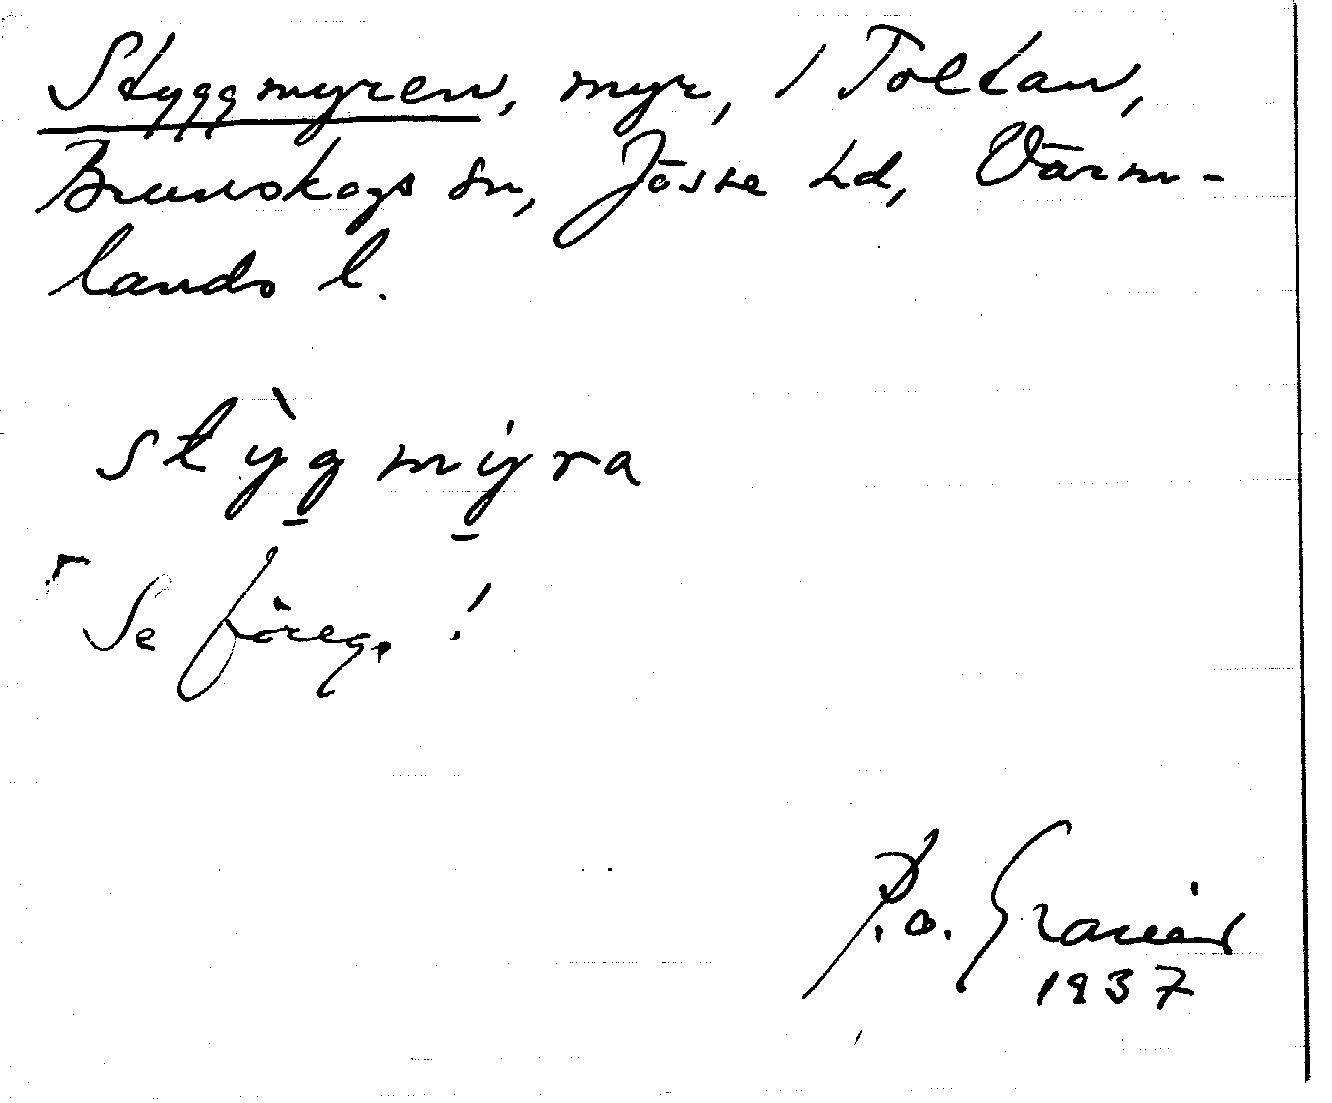 Styggmyren, myr, i Toltan,
Brunskogs sn, Jösse hd, Värm-
lands l.
stỳg mýra
Se föreg. !
P.o. Graner
1937